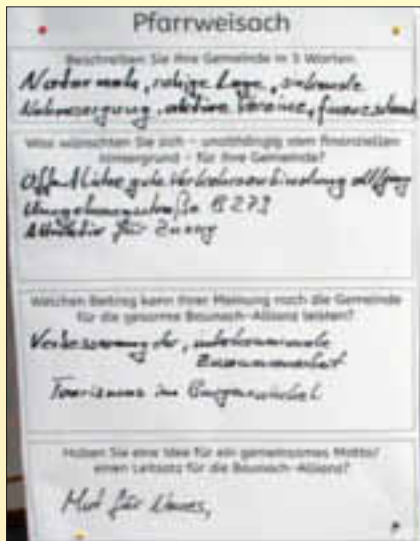 Pfarrweisach
Beschreiben Sie Ihre Gemeinde in 5 Worten.
Naturnah, ruhige Lage,
Nahversorgung, aktive Vereine,
Was wünschten Sie sich – unabhängig vom finanziellen
Hintergrund – für Ihre Gemeinde?
Öffentliche gute Verkehrsanbindung
Umgehungsstraße B 279
Attraktiv für Zuzug
Welchen Beitrag kann Ihrer Meinung nach die Gemeinde
für die gesamte Baunach-Allianz leisten?
Verbesserung der, interkommunale
Zusammenarbeit
Tourismus im Burgenwinkel
Haben Sie eine Idee für ein gemeinsames Motto/
einen Leitsatz für die Baunach-Allianz?
Mut für Neues,